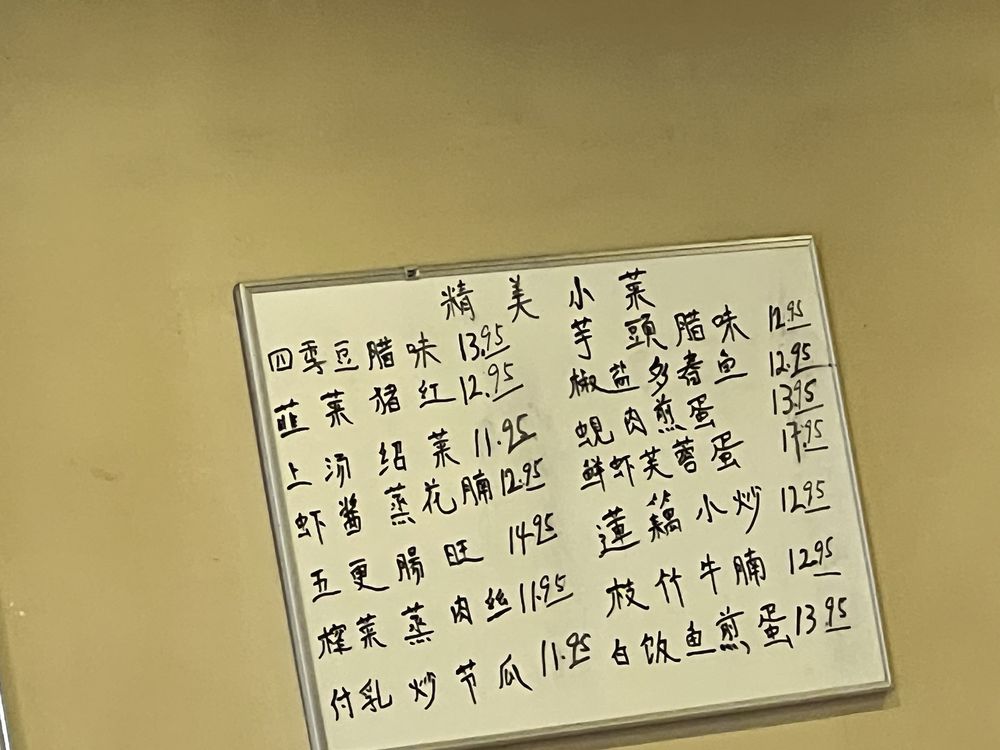 精美小菜
四季豆腊味 13.95
韮菜猪红 12.95
上汤绍菜 11.95
虾酱蒸花腩 12.95
五更腸旺 14.95
榨菜蒸肉丝 11.95
付乳炒节瓜 11.95
芋頭腊味 12.95
椒盐多春鱼 12.95
蜆肉煎蛋 13.95
鲜虾芙蓉蛋 17.95
蓮藕小炒 12.95
枝竹牛腩 12.95
白饭鱼煎蛋 13.95